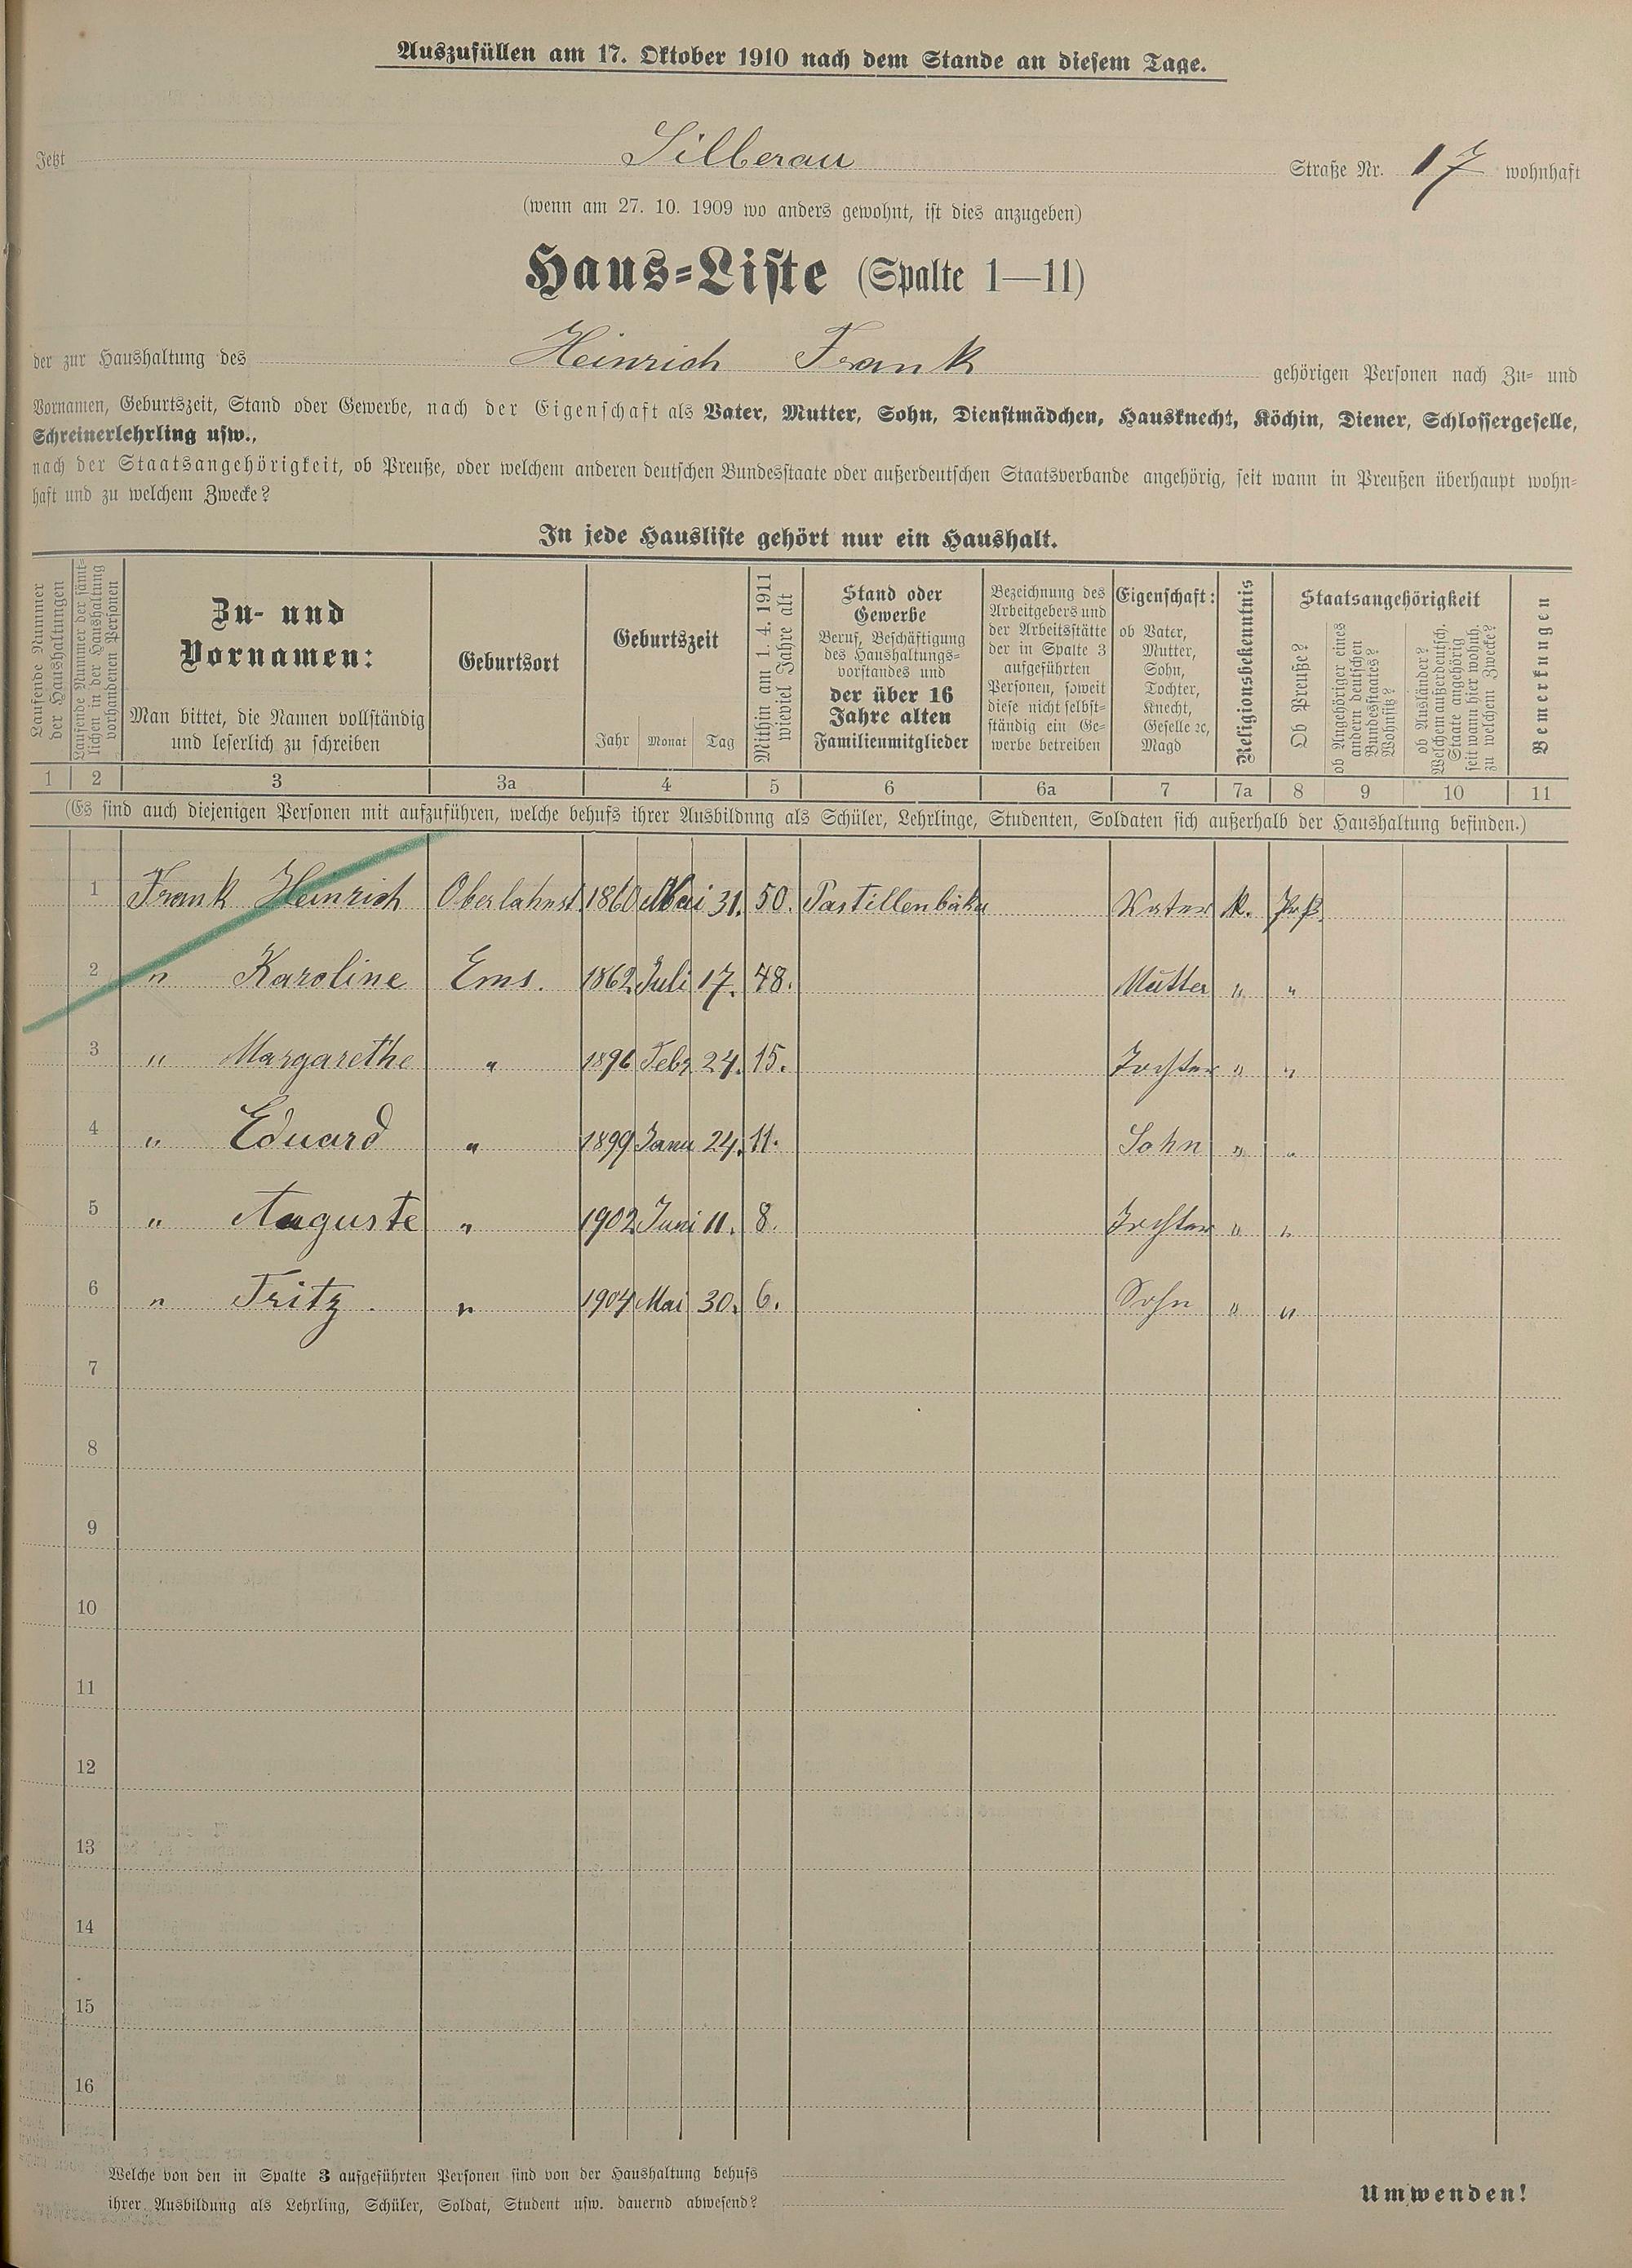 Auszufüllen am 17. Oktober 1910 nach dem Stande an diesem Tage.
Jetzt Silberau Straße Nr. 17 wohnhaft
(wenn am 27. 10. 1909 wo anders gewohnt, ist dies anzugeben)
Haus-Liste (Spalte 1—11)
der zur Haushaltung des Heinrich Frank gehörigen Personen nach Zu- und
Vornamen, Geburtszeit, Stand oder Gewerbe, nach der Eigenschaft als Vater, Mutter, Sohn, Dienstmädchen, Hausknecht, Köchin, Diener, Schlossergeselle,
Schreinerlehrling usw.,
nach der Staatsangehörigkeit, ob Preuße, oder welchem anderen deutschen Bundesstaate oder außerdeutschen Staatsverbande angehörig, seit wann in Preußen überhaupt wohn-
haft und zu welchem Zwecke?
In jede Hausliste gehört nur ein Haushalt.
Laufende Nummer
der Haushaltungen
Laufende Nummer der sämt-
lichen in der Haushaltung
vorhandenen Personen
Zu- und
Vornamen:
Man bittet, die Namen vollständig
und leserlich zu schreiben
Geburtsort
Geburtszeit
Jahr Monat Tag
Mithin am 1. 4. 1911
wieviel Jahre alt
Stand oder
Gewerbe
Beruf, Beschäftigung
des Haushaltungs-
vorstandes und
der über 16
Jahre alten
Familienmitglieder
Bezeichnung des
Arbeitgebers und
der Arbeitsstätte
der in Spalte 3
aufgeführten
Personen, soweit
diese nicht selbst-
ständig ein Ge-
werbe betreiben
Eigenschaft:
ob Vater,
Mutter,
Sohn,
Tochter,
Knecht,
Geselle ꝛc,
Magd
Religionsbekenntnis
Staatsangehörigkeit
Ob Preuße?
ob Angehöriger eines
andern deutschen
Bundesstaates?
Wohnsitz?
ob Ausländer?
Welchem außerdeutsch.
Staate angehörig
seit wann hier wohnh.
zu welchem Zwecke?
Bemerkungen
1 2 3 3a 4 5 6 6a 7 7a 8 9 10 11
(Es sind auch diejenigen Personen mit aufzuführen, welche behufs ihrer Ausbildung als Schüler, Lehrlinge, Studenten, Soldaten sich außerhalb der Haushaltung befinden.)
1 Frank Heinrich Oberlahnst. 1860 Mai 31. 50. Pastillenbäker Vater k. Prß.
2 " Karoline Ems. 1862 Juli 17. 48. Mutter " "
3 " Margarethe " 1896 Febr 24. 15. Tochter " "
4 " Eduard " 1899 Janu 24. 11. Sohn " "
5 " Auguste " 1902 Juni 11. 8. Tochter " "
6 " Fritz. " 1904 Mai 30. 6. Sohn " "
7
8
9
10
11
12
13
14
15
16
Welche von den in Spalte 3 aufgeführten Personen sind von der Haushaltung behufs
ihrer Ausbildung als Lehrling, Schüler, Soldat, Student usw. dauernd abwesend?
Umwenden!